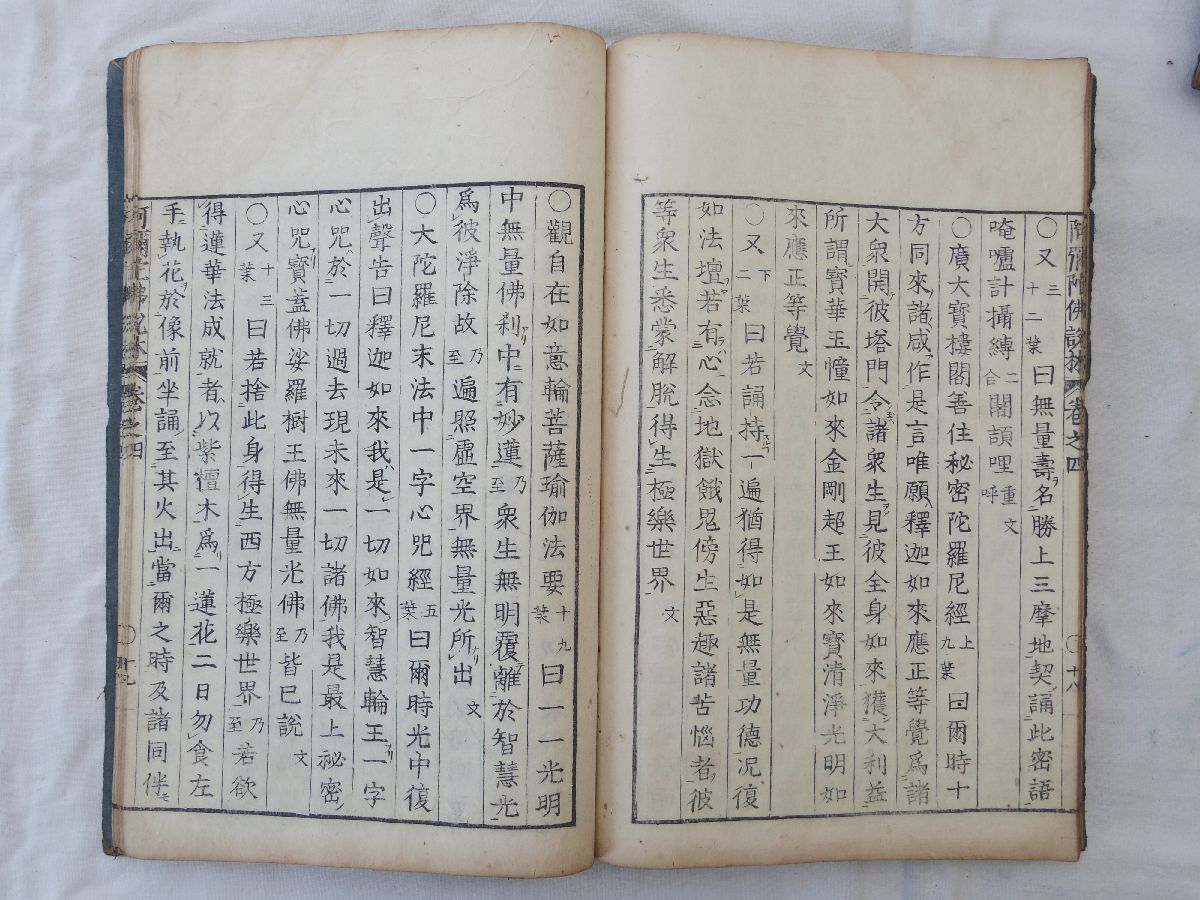 阿彌陀佛說林 卷之四 〇十八
〇又三十二葉曰無量壽名勝上三摩地契誦此密語
唵嚧計攝縛二合闍頡哩重呼文
〇廣大寶樓閣善住秘密陀羅尼經上九葉曰爾時十
方同來諸咸作是言唯願釋迦如來應正等覺爲諸
大衆開彼塔門令諸衆生見彼全身如來獲大利益
所謂寶華玉幢如來金剛超王如來寶清淨光明如
來應正等覺文
〇又下二葉曰若誦持一遍猶得如是無量功德況復
如法壇若有心念地獄餓鬼傍生惡趣諸苦惱者彼
等衆生悉蒙解脫得生極樂世界文
〇觀自在如意輪菩薩瑜伽法要十九葉曰一一光明
中無量佛刹中有妙蓮乃至衆生無明覆離於智慧光
爲彼淨除故乃至遍照虛空界無量光所出文
〇大陀羅尼末法中一字心咒經五葉曰爾時光中復
出聲告曰釋迦如來我是一切如來智慧輪王一字
心咒於一切過去現未來一切諸佛我是最上祕密
心咒寶蓋佛娑羅樹王佛無量光佛乃至皆已說文
〇又十三葉曰若捨此身得生西方極樂世界乃至若欲
得蓮華法成就者以紫檀木爲一蓮花二日勿食左
手執花於像前坐誦至其火出當爾之時及諸同伴
阿彌陀佛說林 卷之四 〇十九